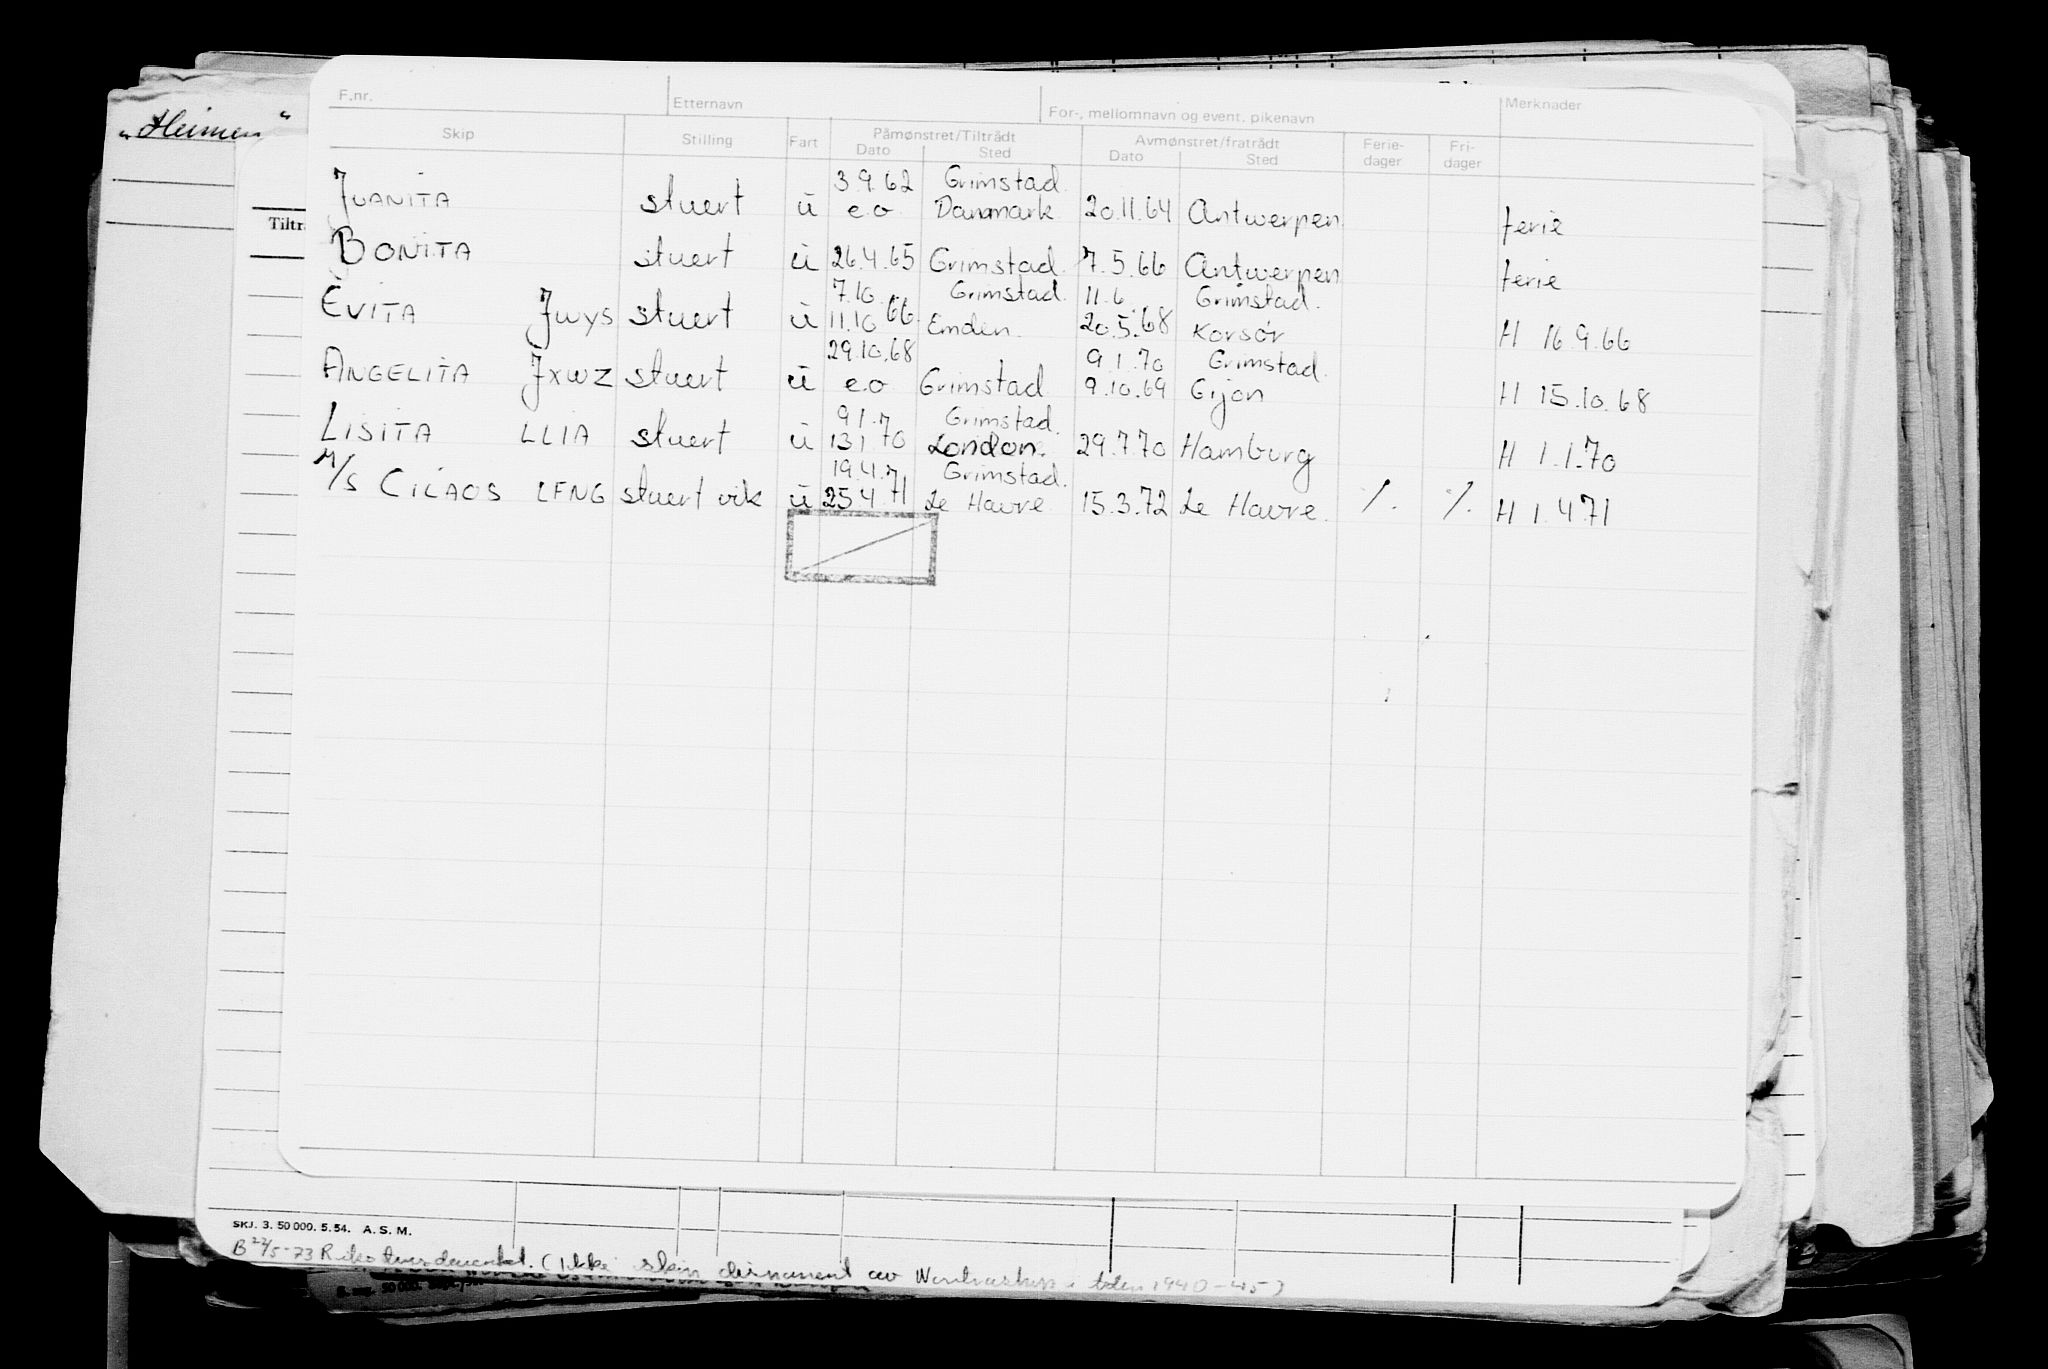 „Heimen“
Tiltr
F.nr. Etternavn For-, mellomnavn og event. pikenavn Merknader
Skip Stilling Fart Påmønstret/Tiltrådt Avmønstret/fratrådt Ferie- Fri-
Dato Sted Dato Sted dager dager
3.9.62 Grimstad.
JUANITA stuert u e.o. Danmark 20.11.64 Antwerpen ferie
BONITA stuert u 26.4.65 Grimstad. 7.5.66 Antwerpen ferie
7.10 Grimstad. 11.6. Grimstad.
EVITA JWYS stuert u 11.10 66. Emden. 20.5.68 Korsør H 16.9.66
29.10.68 9.1.70 Grimstad.
ANGELITA JXWZ stuert u e.o. Grimstad 9.10.69 Gijon H 15.10.68
9.1.7 Grimstad.
LISITA LLIA stuert u 13.1.70 London. 29.7.70 Hamburg H 1.1.70
19.4.7 Grimstad.
M/S CILAOS LFNG stuert vik u 25.4.71 Le Havre. 15.3.72 Le Havre. ·/. ·/. H 1.4.71
SKJ. 3. 50 000. 5. 54. A. S. M.
B 22/5-73 (Ikke 1940-45)